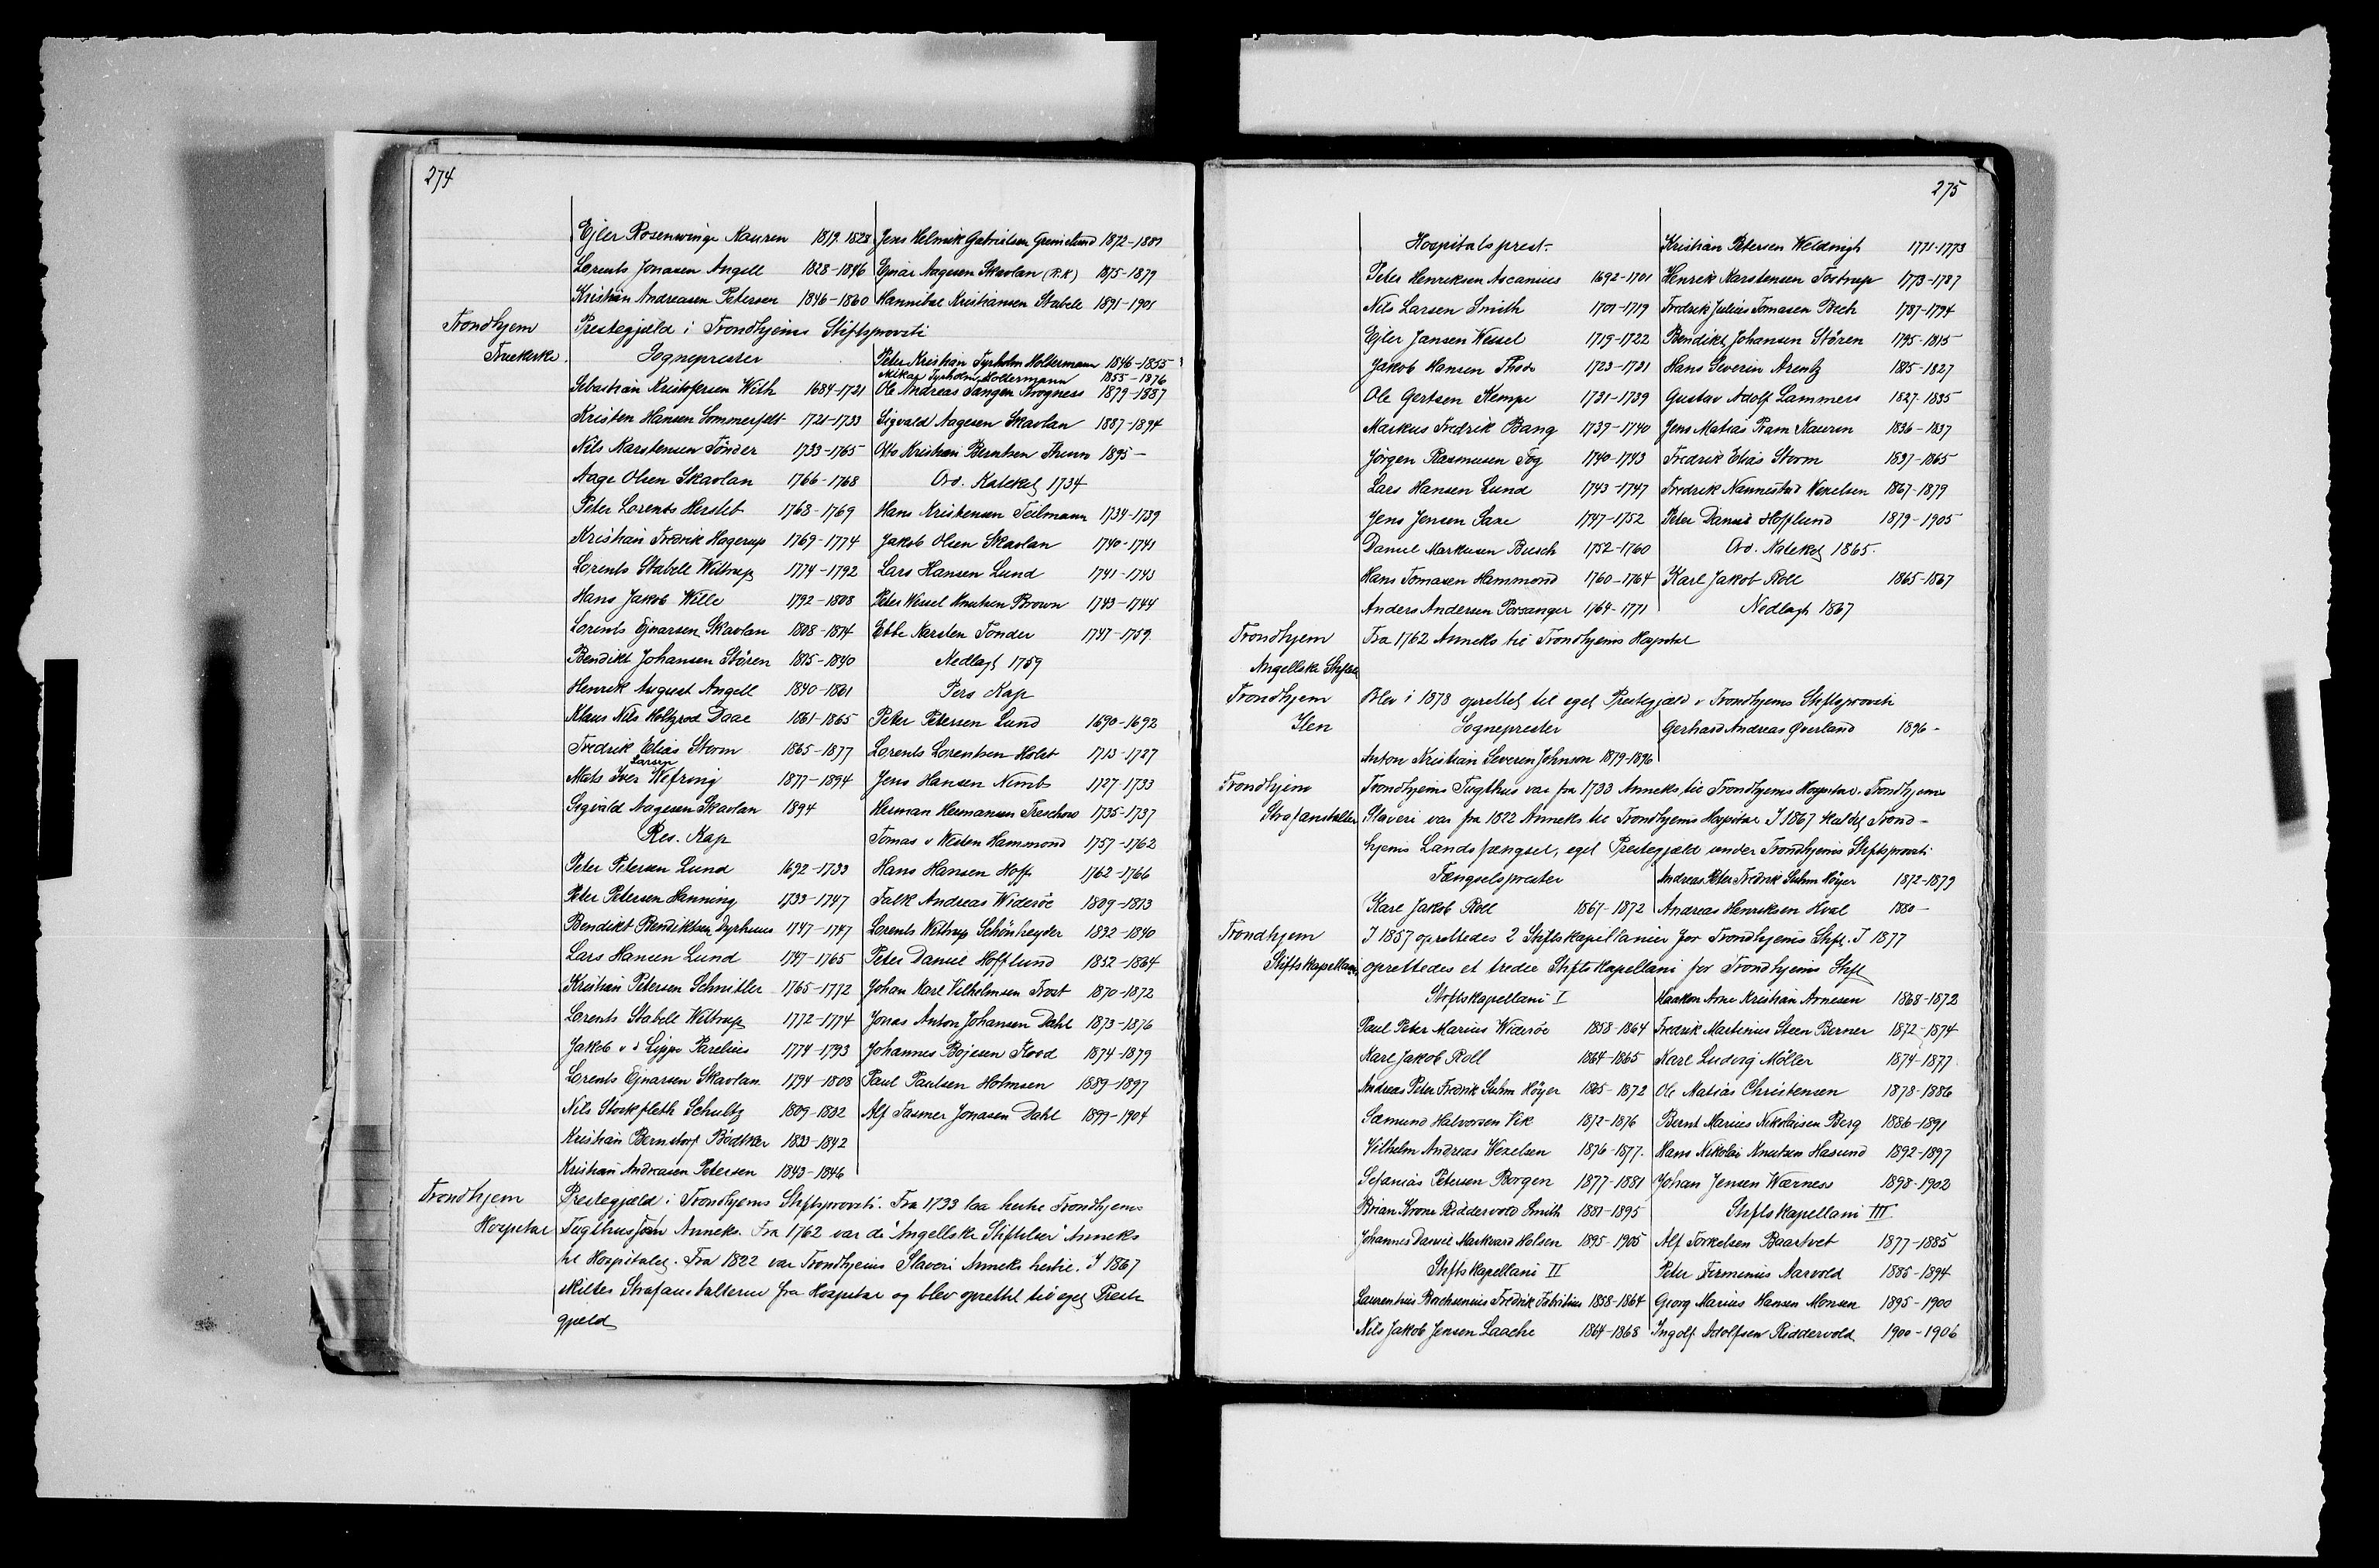 274
Ejler Rosenvinge Kauren 1819-1828
Lorents Jonasen Angell 1828-1846
Kristian Andreasen Petersen 1846-1860
Jens Helmik Gabrielsen Grenistund 1872-1881
Ejnar Aagesen Skavlan (R.K) 1875-1879
Hannibal Kristiansen Stabell 1891-1901
Trondhjem Prestegjæld i Trondhjems Stiftsprovsti
Fruekirke. Sogneprester
Sebastian Kristofersen With 1684-1721
Kristen Hansen Sommerfelt 1721-1733
Nils Karstensen Tönder 1733-1765
Aage Olsen Skavlan 1766-1768
Peter Lorents Herslet 1768-1769
Kristian Fredrik Hagerup 1769-1774
Lorents Stabell Wittrup 1774-1792
Hans Jakob Wille 1792-1808
Lorents Ejnarsen Skavlan 1808-1814
Bendikt Johansen Stören 1815-1840
Henrik August Angell 1840-1861
Klaus Nils Holtzrod Daae 1861-1865
Fredrik Elias Storm 1865-1877
Mats Iver Larsen Wefring 1877-1894
Sigvald Aagesen Skavlan 1894
Res. Kap
Peter Petersen Lund 1692-1733
Peter Petersen Henning 1733-1747
Bendikt Bendiktsen Dyrhuus 1747-1747
Lars Hansen Lund 1747-1765
Kristian Petersen Schnitler 1765-1772
Lorents Stabell Wittrup 1772-1774
Jakob v d Lippe Parelius 1774-1793
Lorents Ejnarsen Skavlan 1794-1808
Nils Stockfleth Schultz 1809-1832
Kristian Bernstorf Bödtker 1833-1842
Kristian Andreasen Petersen 1843-1846
Peter Kristian Tyrholm Holtermann 1846-1855
Mikael Tyrholm Holtermann 1855-1876
Ole Andreas Tangen Krogness 1879-1887
Sigvald Aagesen Skavlan 1887-1894
Otto Kristian Berntsen Thurn 1895-
Ord. Kateket 1734
Hans Kristensen Teilmann 1734-1739
Jakob Olsen Skavlan 1740-1741
Lars Hansen Lund 1741-1743
Peter Wessel Knutsen Brown 1743-1744
Ebbe Karsten Tonder 1747-1759
Nedlagt 1759
Pers Kap
Peter Petersen Lund 1690-1692
Lorents Lorentsen Holst 1713-1727
Jens Hansen Nimb 1727-1733
Herman Hermansen Treschow 1735-1737
Tomas v Westen Hammond 1757-1762
Hans Hansen Hoff 1762-1766
Falk Andreas Wideröe 1809-1813
Lorents Wittrup Schönheyder 1832-1840
Peter Daniel Hofflund 1852-1864
Johan Karl Vilhelmsen Trost 1870-1872
Jonas Anton Johansen Dahl 1873-1876
Johannes Bojesen Flood 1874-1879
Paul Paulsen Holmsen 1889-1897
Alf Fasmer Jonasen Dahl 1899-1904
Trondhjem Prestegjæld i Trondhjems Stiftsprovsti. Fra 1733 laa hertil Trondhjems
Hospital Tugthus som Anneks. Fra 1762 var de "Angellske Stiftelser" Anneks
til Hospitalet. Fra 1822 var Trondhjems Slaveri Anneks hertil. I 1867
skiltes Strafanstalterne fra Hospital og blev oprettet til eget Preste
gjæld
275
Hospitalsprest
Peter Henriksen Ascanius 1692-1701
Nils Larsen Smith 1701-1719
Ejler Jansen Wessel 1719-1722
Jakob Hansen Thode 1723-1731
Ole Gertsen Kempe 1731-1739
Markus Fredrik Bang 1739-1740
Jörgen Rasmusen Fog 1740-1743
Lars Hansen Lund 1743-1747
Jens Jensen Saxe 1747-1752
Daniel Markusen Busch 1752-1760
Hans Tomasen Hammond 1760-1764
Anders Andersen Porsanger 1764-1771
Kristian Petersen Weldingh 1771-1773
Henrik Karstensen Tostrup 1773-1787
Fredrik Julius Tomasen Bech 1787-1794
Bendikt Johansen Stören 1795-1815
Hans Severin Arentz 1815-1827
Gustav Adolf Lammers 1827-1835
Jens Matias Pram Kaurin 1836-1837
Fredrik Elias Storm 1837-1865
Fredrik Nannestad Wexelsen 1867-1879
Peter Daniel Hofflund 1879-1905
Ord. Kateket 1865.
Karl Jakob Roll 1865-1867
Nedlagt 1867
Trondhjem Fra 1762 Anneks til Trondhjems Hospital
Angellske Stiftels
Trondhjem Blev i 1878 oprettet til eget Prestegjæld i Trondhjems Stiftsprovsti
Ilen Sogneprester
Anton Kristian Severen Johnson 1879-1896
Gerhard Andreas Øverland 1896-
Trondhjem Trondhjems Tugthus var fra 1733 Anneks til Trondhjems Hospital. Trondhjems
Strafanstalter Slaveri var fra 1822 Anneks til Trondhjems Hospital I 1867 kaldet Trond-
hjems Landsfængsel, eget Prestegjæld under Trondhjems Stiftsprovsti
Fængselsprester
Karl Jakob Roll 1867-1872
Andreas Peter Fredrik Suhm Höyer 1872-1879
Andreas Henriksen Hval 1880-
Trondhjem I 1857 oprettedes 2 Stiftskapellanier for Trondhjems Stift. I 1877
Stiftskapellani oprettedes et tredie Stiftskapellani for Trondhjems Stift
Stiftskapellani I
Paul Peter Marius Wideröe 1858-1864
Karl Jakob Roll 1864-1865
Andreas Peter Fredrik Suhm Höyer 1865-1872
Sæmund Halvorsen Vik 1872-1876
Vilhelm Andreas Wexelsen 1876-1877.
Sefanias Petersen Borgen 1877-1881
Brian Krone Riddervold Smith 1881-1895
Johannes Daniel Markvard Holsen 1895-1905
Stiftskapellani II
Laurentius Borchsenius Fredrik Fabritius 1858-1864
Nils Jakob Jensen Laache 1864-1868
Haakon Arne Kristian Arnesen 1868-1872
Fredrik Martinius Steen Berner 1872-1874
Karl Ludvig Möller 1874-1877
Ole Matias Christensen 1878-1886
Bernt Marius Nikolaisen Berg 1886-1891
Hans Nikolai Knutsen Hasund 1892-1897
Johan Jensen Wærness 1898-1902
Stiftskapellani III
Alf Torkelsen Baartvet 1877-1885
Peter Firmenius Aarvold 1885-1894
Georg Marius Hansen Monsen 1895-1900
Ingolf Adolfsen Riddervold 1900-1906